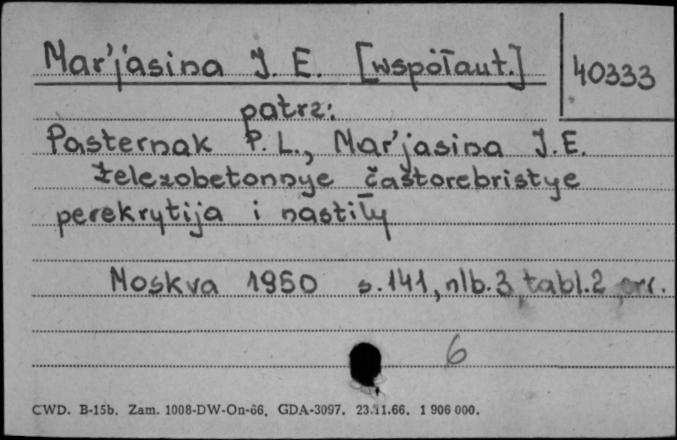 Mar'jasina J. E. [współaut.] 40333
patrz:
Pasternak P. L., Mar'jasina J. E.
Železobetonnye častorebristye
perekrytija i nastiły
Moskva 1950 s. 141, nlb. 3, tabl. 2,
6
CWD. B-15b. Zam. 1008-DW-On-66. GDA-3097. 23.11.66. 1 906 000.